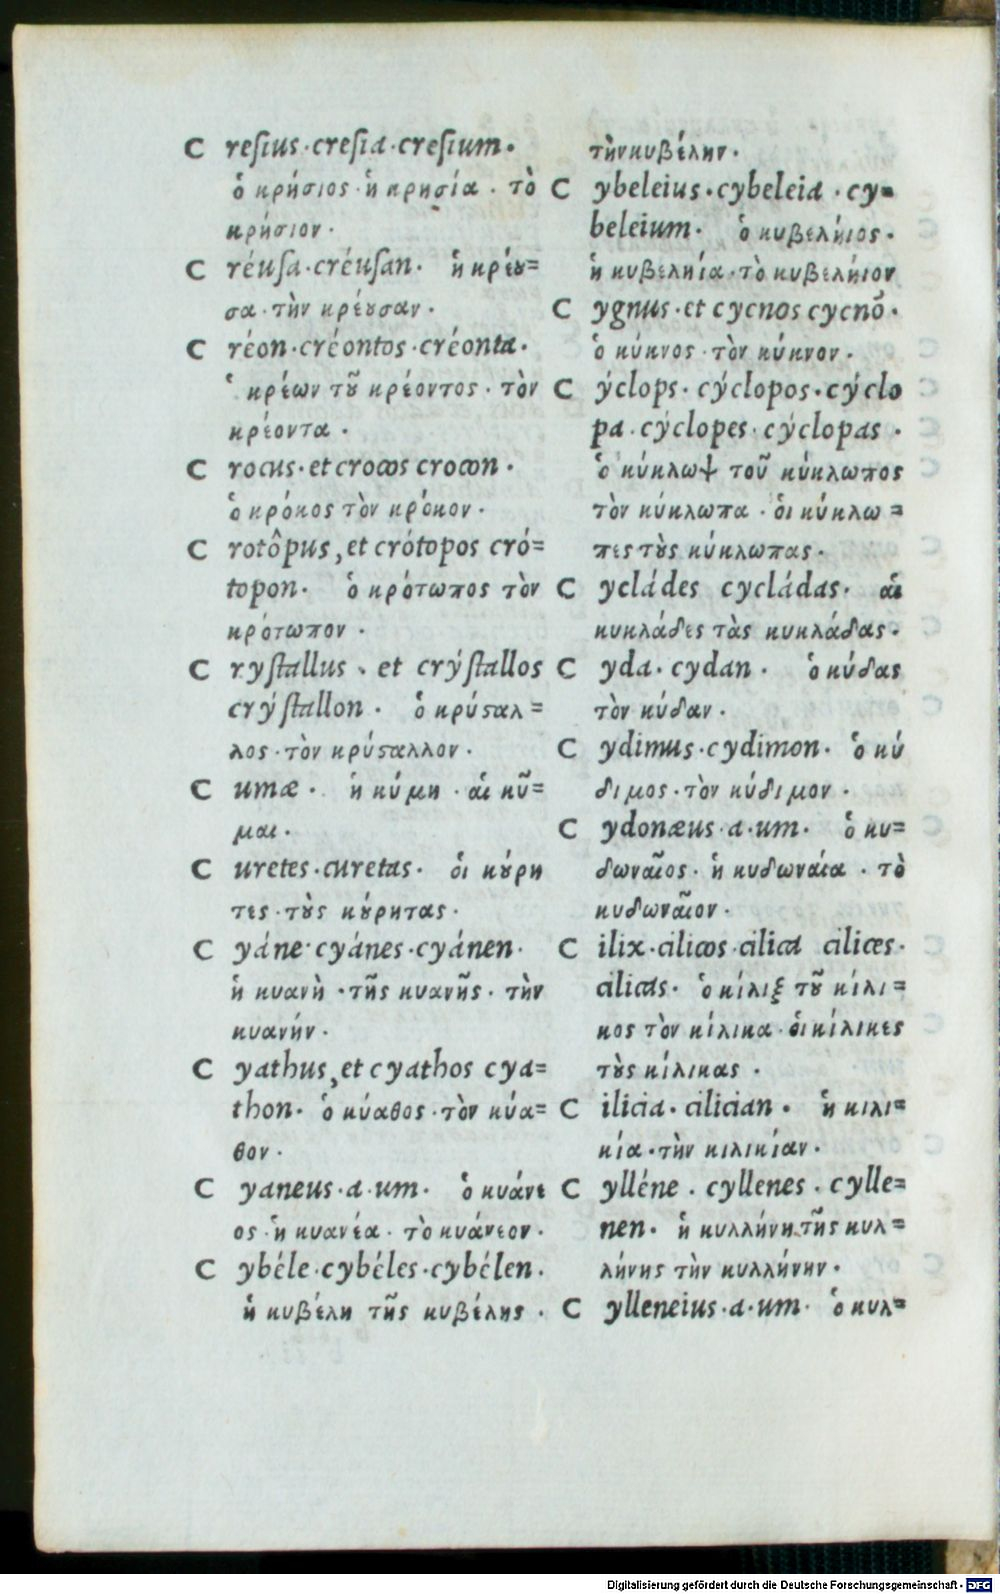 C resius·cresia·cresium·
ὁ κρήσιος·ἡ κρησία·τὸ
κρήσιον·
C réusa·créusan· ἡ κρέȣ=
σα·τὴν κρέȣσαν·
C réon·créontos·créonta·
ὁ κρέων τȣ͂ κρέοντος·τὸν
κρέοντα·
C rocus·et crocos crocon·
ὁ κρόκος τὸν κρόκον·
C rotôpus, et crótopos cró=
topon· ὁ κρότωπος τὸν
κρότωπον·
C rystallus·et crýstallos
crýstallon· ὁ κρύϛαλ=
λος·τὸν κρύϛαλλον·
C umæ· ἡ κύμη·αἱ κῦ=
μαι·
C uretes·curetas· οἱ κȣ́ρη
τες·τοὺς κȣ́ρητας·
C yáne·cyánes·cyánen·
ἡ κυανὴ·τῆς κυανῆς·τὴν
κυανήν·
C yathus, et cyathos cya=
thon· ὁ κύαθος·τὸν κύα=
θον·
C yaneus·a·um· ὁ κυάνε
ος·ἡ κυανέα·τὸ κυάνεον·
C ybéle·cybéles·cybélen·
ἡ κυβέλη τῆς κυβέλης·
τὴν κυβέλην·
C ybeleius·cybeleia·cy=
beleium· ὁ κυβελήιος·
ἡ κυβεληία·τὸ κυβελήιον
C ygnus·et cycnos cycnō·
ὁ κύκνος·τὸν κύκνον·
C ýclops·cýclopos·cýclo
pa·cýclopes·cýclopas·
ὁ κύκλωψ τοῦ κύκλωπος
τὸν κύκλωπα·οἱ κύκλω=
πες τȣ̀ς κύκλωπας·
C ycládes cycládas· αἱ
κυκλάδες τὰς κυκλάδας·
C yda·cydan· ὁ κύδας
τὸν κύδαν·
C ydimus·cydimon· ὁ κύ
διμος·τὸν κύδιμον·
C ydonæus·a·um· ὁ κυ=
δωναῖος·ἡ κυδωναία·τὸ
κυδωναῖον·
C ilix·cilicos·cilica cilices·
cilicas· ὁ κίλιξ τȣ͂ κίλι=
κος τὸν κίλικα·οἱ κίλικες
τȣ̀ς κίλικας·
C ilicia·cilician· ἡ κιλι=
κία·τὴν κιλικίαν·
C ylléne·cyllenes·cylle=
nen· ἡ κυλλήνη·τῆς κυλ=
λήνης τὴν κυλλήνην·
C ylleneius·a·um· ὁ κυλ=
Digitalisierung gefördert durch die Deutsche Forschungsgemeinschaft - DFG